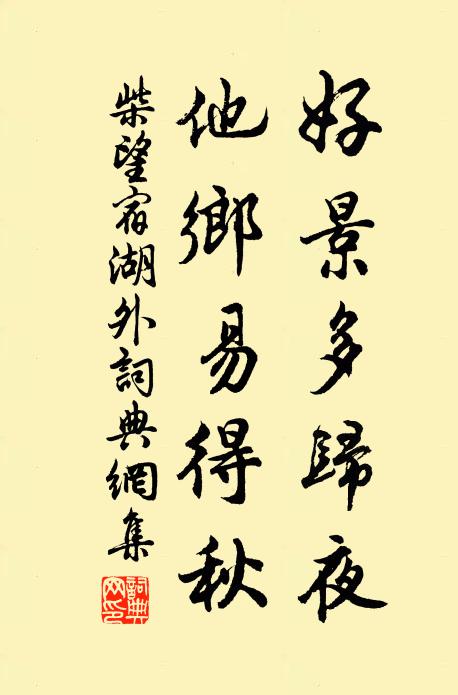 好景多歸夜
他鄉易得秋
柴望宿湖外詞典網集
詞典網印